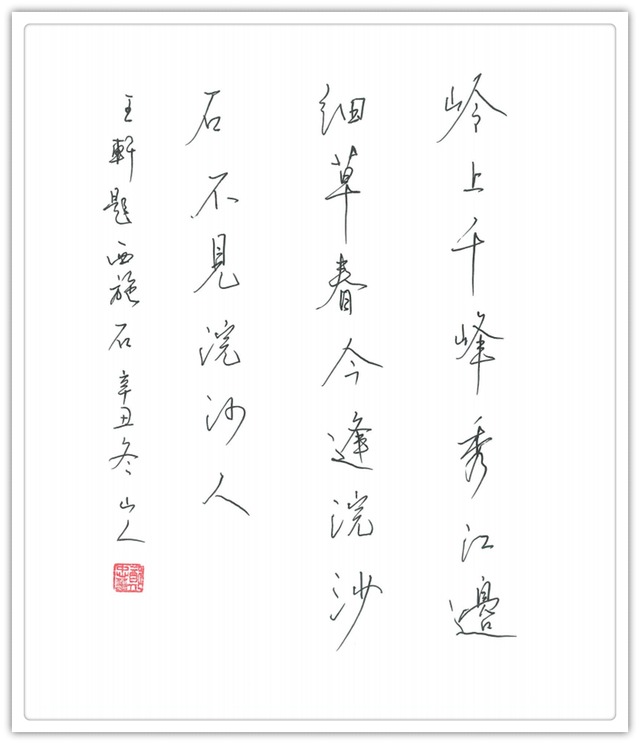 岭上千峰秀江邊
细草春今逢浣沙
石不見浣沙人
王軒題西施石辛丑冬山人